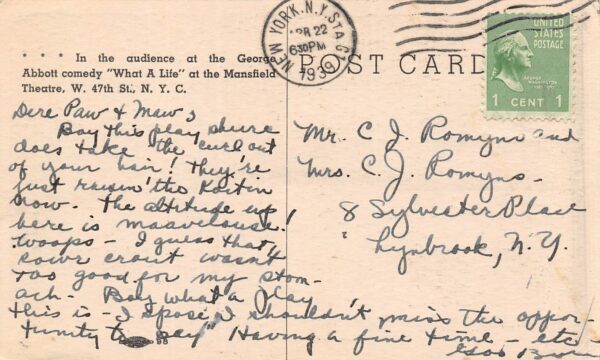 • • • • In the audience at the George
Abbott comedy "What A Life" at the Mansfield
Theatre, W. 47th St., N. Y. C.
NEW YORK, N.Y. STA
APR 22
630PM
1939
POST CARD
UNITED
STATES
POSTAGE
GEORGE
WASHINGTON
1 CENT 1
Dere Paw & Maw;
Boy this play shure
does take the curl out
of your hair! They're
just raisin' the
now. The altitude up
here is maavelouse!
Woops – I guess that
sowr crout wasn't
too good for my stom-
ach. – Boy what a play
this is – I spose I shouldn't miss the oppor-
tunity to say "Having a fine time – etc
Mr. C J. Romyns and
Mrs. C. J. Romyns –
8 Sylvester Place
Lynbrook, N. Y.